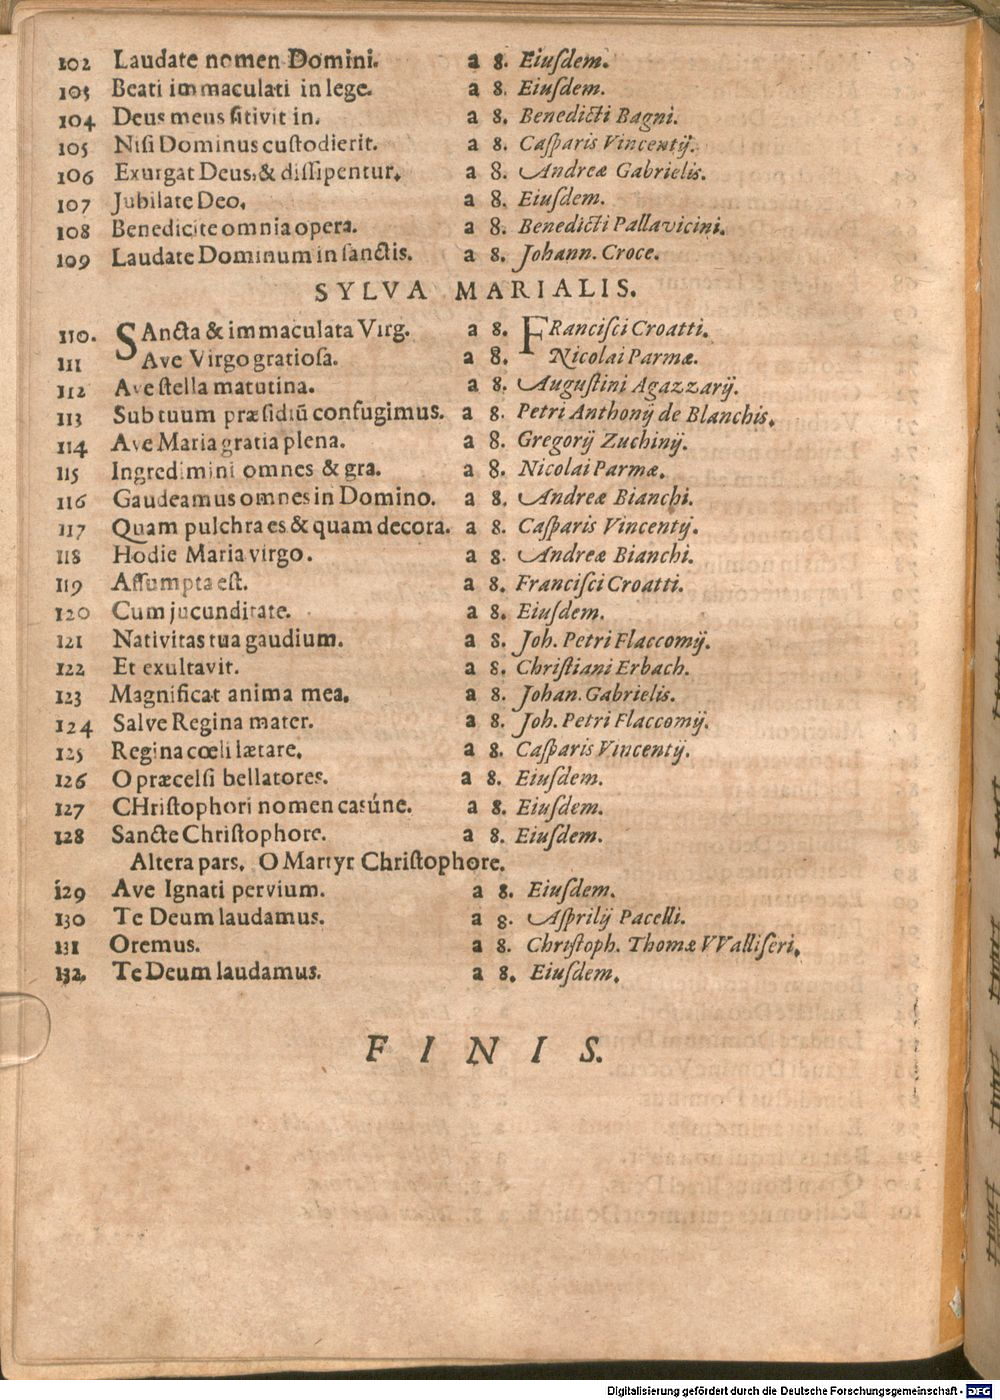 102 Laudate nomen Domini. a 8. Eiuſdem.
103 Beati immaculati in lege. a 8. Eiuſdem.
104 Deus meus ſitivit in. a 8. Benedicti Bagni.
105 Niſi Dominus cuſtodierit. a 8. Caſparis Vincentij.
106 Exurgat Deus, & diſſipentur. a 8. Andreæ Gabrielis.
107 Jubilate Deo. a 8. Eiuſdem.
108 Benedicite omnia opera. a 8. Benedicti Pallavicini.
109 Laudate Dominum in ſanctis. a 8. Johann. Croce.
SYLVA MARIALIS.
110. SAncta & immaculata Virg. a 8. FRanciſci Croatti.
111 Ave Virgo gratioſa. a 8. Nicolai Parmæ.
112 Ave ſtella matutina. a 8. Auguſtini Agazzarij.
113 Sub tuum præſidiũ confugimus. a 8. Petri Anthonij de Blanchis.
114 Ave Maria gratia plena. a 8. Gregorij Zuchinij.
115 Ingredimini omnes & gra. a 8. Nicolai Parmæ.
116 Gaudeamus omnes in Domino. a 8. Andreæ Bianchi.
117 Quam pulchra es & quam decora. a 8. Caſparis Vincentij.
118 Hodie Maria virgo. a 8. Andreæ Bianchi.
119 Aſſumpta eſt. a 8. Franciſci Croatti.
120 Cum jucunditate. a 8. Eiuſdem.
121 Nativitas tua gaudium. a 8. Joh. Petri Flaccomij.
122 Et exultavit. a 8. Chriſtiani Erbach.
123 Magnificat anima mea. a 8. Johan. Gabrielis.
124 Salve Regina mater. a 8. Joh. Petri Flaccomij.
125 Regina cœli lætare. a 8. Caſparis Vincentij.
126 O præcelſi bellatores. a 8. Eiuſdem.
127 CHriſtophori nomen casúne. a 8. Eiuſdem.
128 Sancte Chriſtophore. a 8. Eiuſdem.
Altera pars. O Martyr Chriſtophore.
129 Ave Ignati pervium. a 8. Eiuſdem.
130 Te Deum laudamus. a 8. Aſprilij Pacelli.
131 Oremus. a 8. Chriſtoph. Thomæ VValliſeri.
132. Te Deum laudamus. a 8. Eiuſdem.
FINIS.
Digitalisierung gefördert durch die Deutsche Forschungsgemeinschaft - DFG